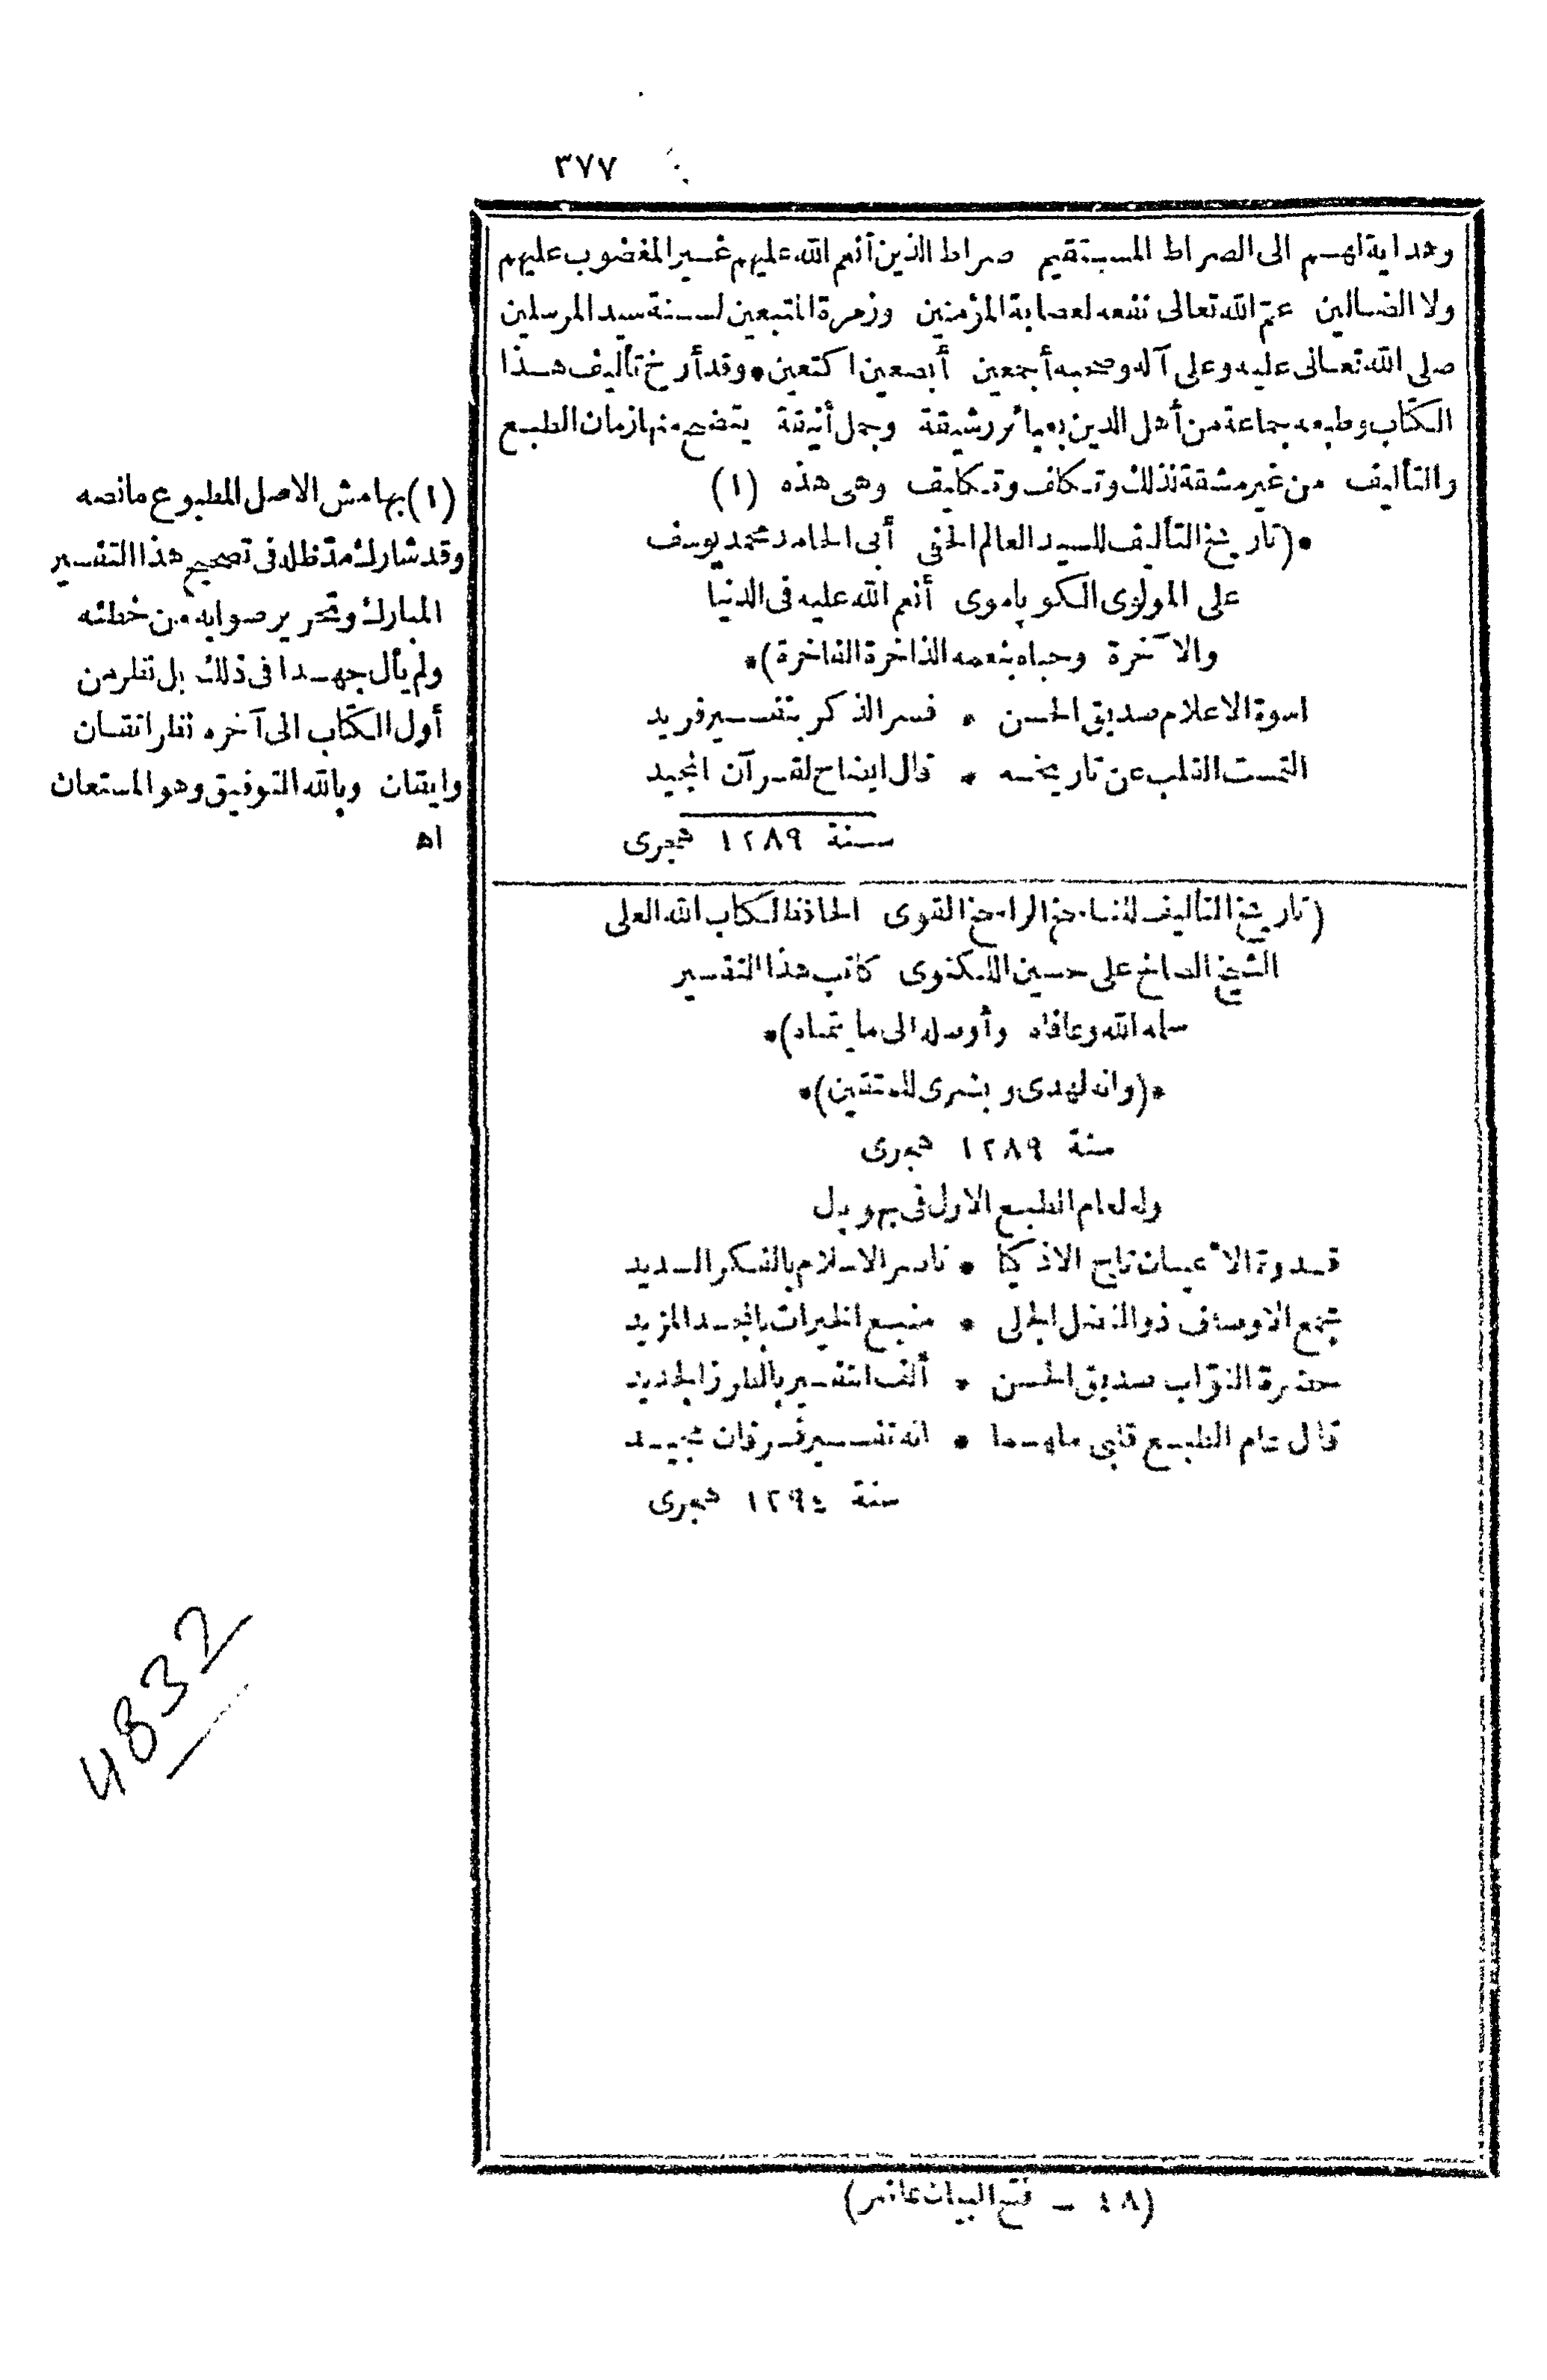 ٣٧٧
وهداية لهم الى الصراط المستقيم صراط الذين أنعم الله عليهم غير المغضوب عليهم
ولا الضالين عمّ الله تعالى نفعه لعصابة المؤمنين وزمرة المتبعين لسنة سيد المرسلين
صلى الله تعالى عليه وعلى آله وصحبه أجمعين أبصعين اكتعين * وقد أرخ تأليف هذا
الكتاب وطبعه جماعة من أهل الدين بعبائر رشيقة وجمل أنيقة يتضح منها زمان الطبع
والتأليف من غير مشقة لذلك وتكلف وتكليف وهى هذه (١)
*(تاريخ التأليف للسيد العالم الحفى أبى الحامد محمد يوسف
على المولوى الكوپاموى أنعم الله عليه فى الدنيا
والآخرة وحباه بنعمه الذاخرة الفاخرة)*
اسوة الاعلام صديق الحسن * فسر الذكر بتفسير فريد
التمست القلب عن تاريخه * قال ايضاح لقرآن المجيد
سنة ١٢٨٩ هجرى
(تاريخ التأليف للناسخ الراسخ القوى الحافظ لكتاب الله العلى
الشيخ الصالح على حسين اللكنوى كاتب هذا التفسير
سلمه الله وعافاه وأوصله الى ما يتمناه)*
*(وانه لهدى وبشرى للمتقين)*
سنة ١٢٨٩ هجرى
وله لعام الطبع الاول فى بهوپال
قدوة الأعيان تاج الاذكيا * ناصر الاسلام بالفكر السديد
مجمع الاوصاف ذو الفضل الجلى * منبع الخيرات بالمجد المزيد
حضرة النوّاب صديق الحسن * ألف التفسير بالطرز الجديد
قال عام الطبع قلبى ملهما * انه تفسير فرقان مجيد
سنة ١٢٩٤ هجرى
(١) بهامش الاصل المطبوع مانصه
وقد شارك مدّظله فى تصحيح هذا التفسير
المبارك وتحرير صوابه من خطئه
ولم يأل جهدا فى ذلك بل نظر من
أول الكتاب الى آخره نظر اتقان
وايقان وبالله التوفيق وهو المستعان
اه
4832
(٤٨ - فتح البيان عاشر)